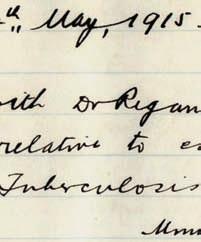 th May, 1915.
with Dr Regan
relative to
Tuberculosis